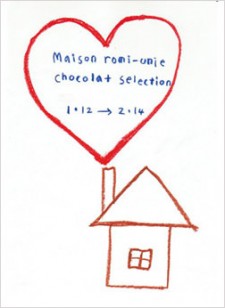 Maison romi-unie
chocolat selection
1・12 → 2・14